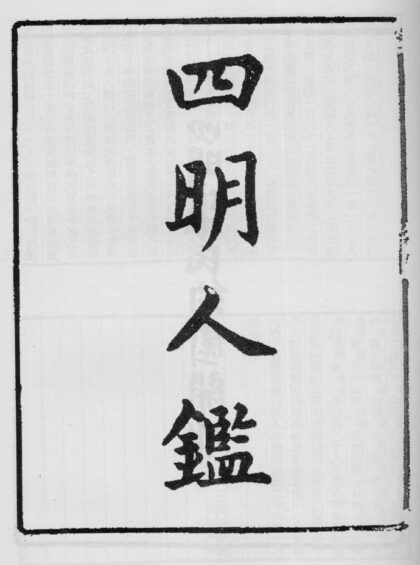 四明人鑑